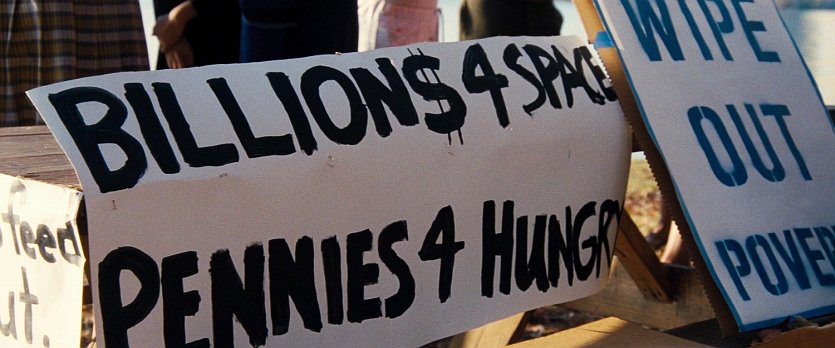 BILLION$ 4 SPACE
PENNIES 4 HUNGRY
WIPE
OUT
feed
ut.